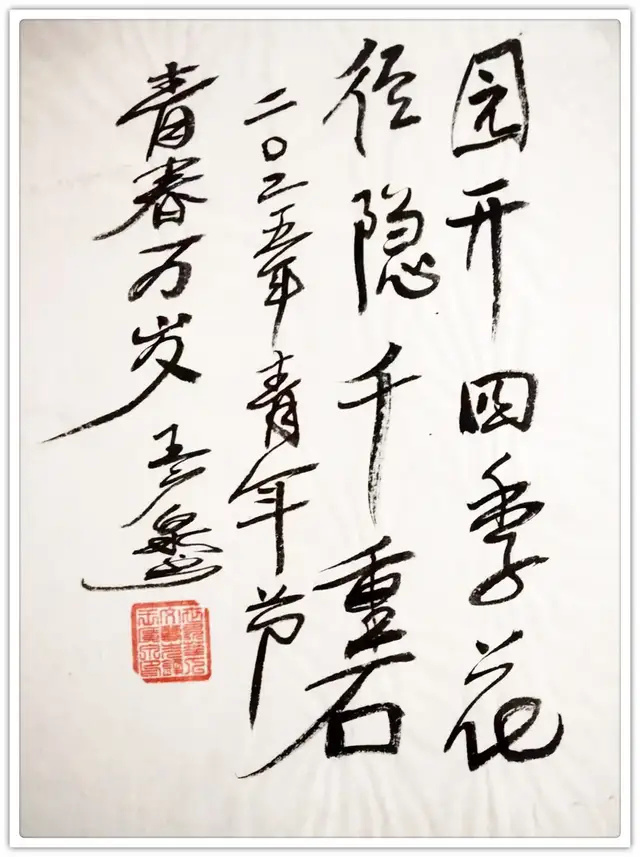 园开四季花
径隐千重石
二〇二五年青年节
青春万岁